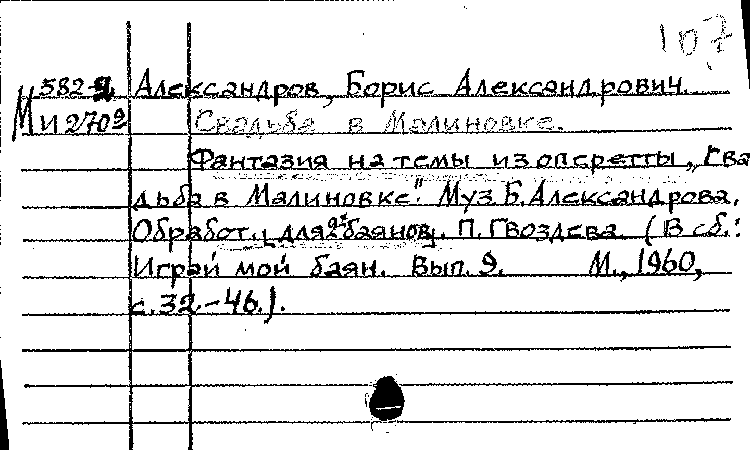 107
582-2 Александров, Борис Александрович.
М И 2709 Свадьба в Малиновке.
Фантазия на темы из оперетты „Сва
дьба в Малиновке". Муз Б. Александрова.
Обработ. для 2х баянов П. Гвоздева (В сб.:
Играй мой баян. Вып. 9. М., 1960,
с. 32-46.).